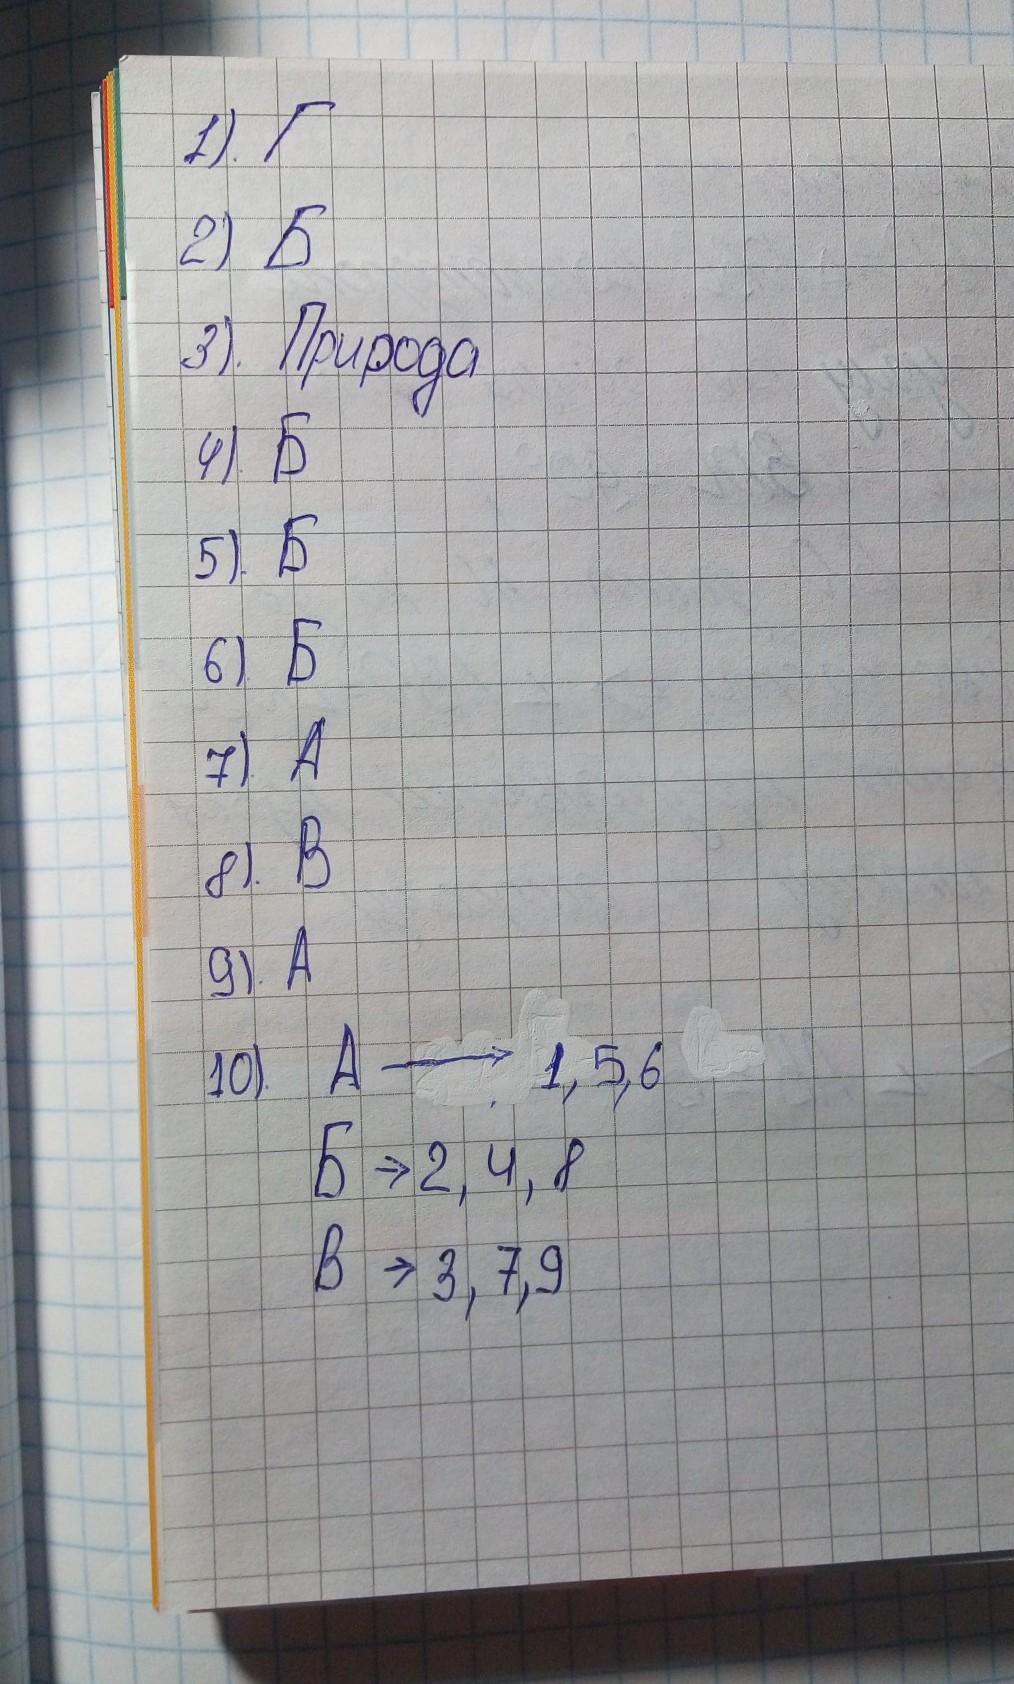 1). Г
2) Б
3). Природа
4). Б
5). Б
6). Б
7). А
8). В
9). А
10). А → 1, 5, 6
Б → 2, 4, 8
В → 3, 7, 9